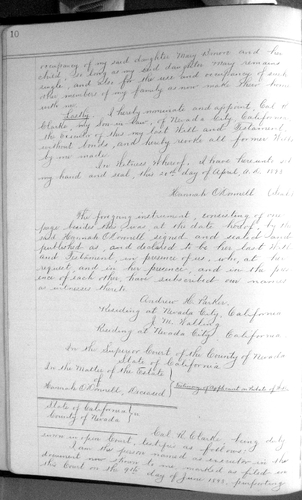 10
company of my said daughter Mary Lenora and her
child, so long as my said daughter Mary remains
single, and also for the use and occupancy of such
other members of my family as now make their home
with me.
Lastly. I hereby nominate and appoint, Cal R.
Clarke my Son in Law, of Nevada City, California
the Executor of this my last Will and Testament,
without bonds, and hereby revoke all former Wills
by me made.
In Witness Whereof, I have hereunto set
my hand and seal, this day of April, A.D.
Hannah O'Donnell (Seal)
The foregoing instrument, consisting of one
page besides this, was at the date hereof by the
said Hannah O'Donnell signed and sealed and
published as, and declared to be her last Will
and Testament, in presence of us, who, at her
request and in her presence, and in the pres
ence of each other, have subscribed our names
as witnesses thereto.
Andrew H. Parker,
Residing at Nevada City, California
J. M. Walling
Residing at Nevada City, California
In the Superior Court of the County of Nevada
State of California
In the Matter of the Estate
of
Hannah O'Donnell, Deceased } Testimony of Applicant on Probate of Will
State of California } ss
County of Nevada
Cal R. Clarke, being duly
sworn in open Court, testifies as follows:
I am the person named as executor in the
document now shown to me marked as filed in
this Court on the 9th day of June purporting